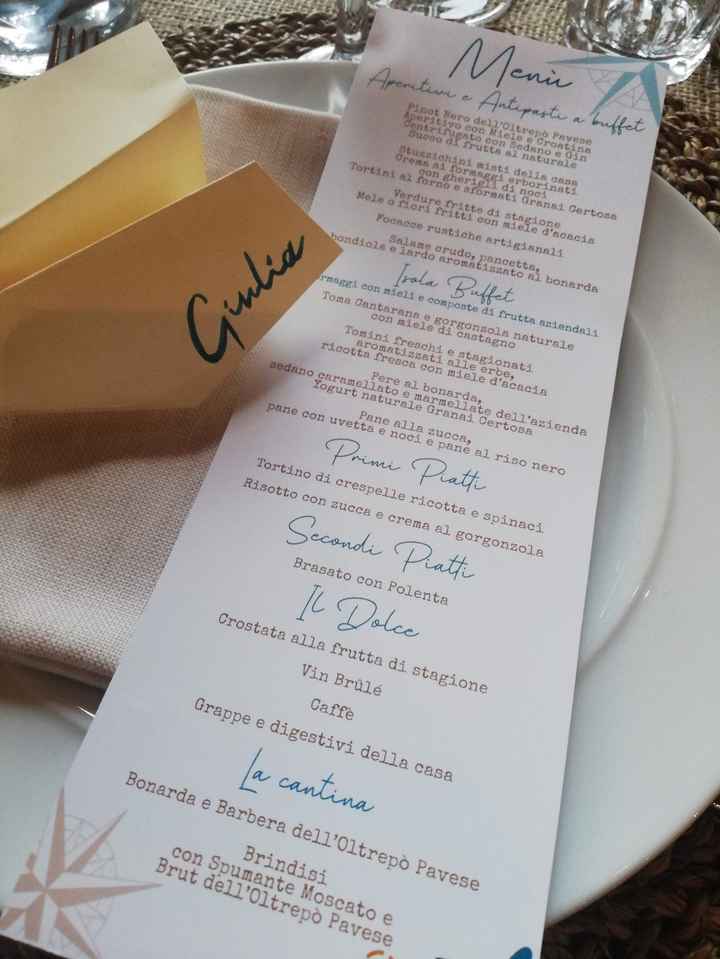 Menù
Aperitivi e Antipasti a buffet
Pinot Nero dell'Oltrepò Pavese
Aperitivo con Miele e Croatina
Centrifugato con Sedano e Gin
Succo di frutta al naturale
Stuzzichini misti della casa
Crema ai formaggi erborinati
con gherigli di noci
Tortini al forno e sformati Granai Certosa
Verdure fritte di stagione
Mele o fiori fritti con miele d'acacia
Focacce rustiche artigianali
Salame crudo, pancetta,
bondiola e lardo aromatizzato al bonarda
Isola Buffet
rmaggi con mieli e composte di frutta aziendali
Toma Cantarana e gorgonzola naturale
con miele di castagno
Tomini freschi e stagionati
aromatizzati alle erbe,
ricotta fresca con miele d'acacia
Pere al bonarda,
sedano caramellato e marmellate dell'azienda
Yogurt naturale Granai Certosa
Pane alla zucca,
pane con uvetta e noci e pane al riso nero
Primi Piatti
Tortino di crespelle ricotta e spinaci
Risotto con zucca e crema al gorgonzola
Secondi Piatti
Brasato con Polenta
Il Dolce
Crostata alla frutta di stagione
Vin Brûlé
Caffè
Grappe e digestivi della casa
La cantina
Bonarda e Barbera dell'Oltrepò Pavese
Brindisi
con Spumante Moscato e
Brut dell'Oltrepò Pavese
Giulia